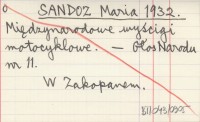 o SANDOZ Maria 1932.
Międzynarodowe wyścigi
motocyklowe. — Głos Narodu
nr 11.
W Zakopanem.